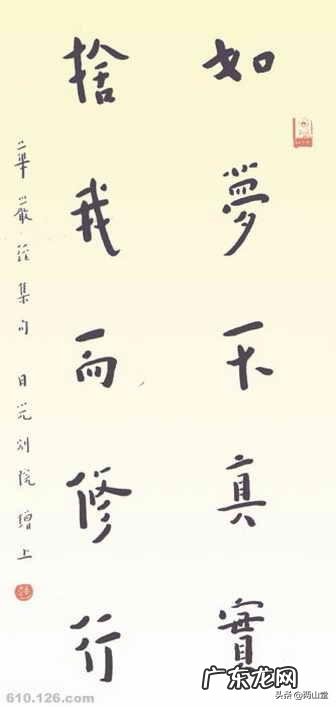 如夢不真實
捨我而修行
華嚴經集句 日光別院
610.126.com
广东龙网
头条 @两山堂